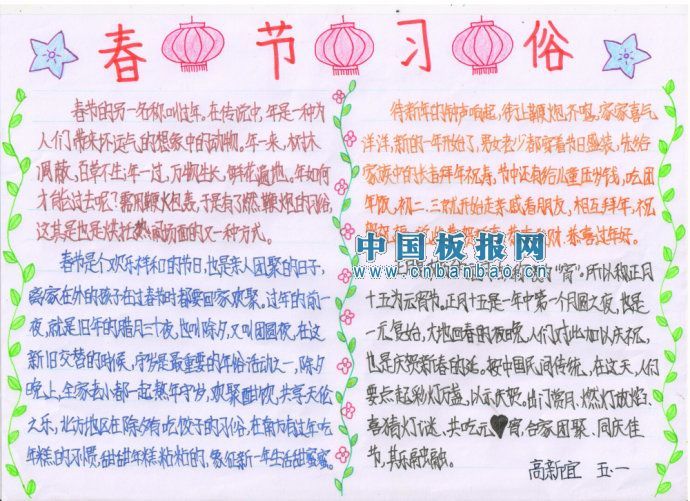 春节习俗
春节的另一名称叫过年。在传说中,年是一种为
人们带来坏运气的想象中的动物。年一来,树木
凋敝,百草不生;年一过,万物生长,鲜花遍地。年如何
才能过去呢?需用鞭炮轰,于是有了燃鞭炮的习俗,
这其实也是烘托热闹场面的又一种方式。
春节是个欢乐祥和的节日,也是亲人团聚的日子,
离家在外的孩子在过春节时都要回家欢聚。过年的前一
夜,就是旧年的腊月三十夜,也叫除夕,又叫团圆夜,在这
新旧交替的时候,守岁是最重要的年俗活动之一,除夕
晚上,全家老小都一起熬年守岁,欢聚酣饮,共享天伦
之乐,北方地区在除夕有吃饺子的习俗,在南方有过年吃
年糕的习惯,甜甜年糕粘粘的,象征新一年生活甜蜜蜜。
待新年的钟声响起,街上鞭炮齐鸣,家家喜气
洋洋,新的一年开始了,男女老少都穿着节日盛装,先给
家族中的长者拜年祝寿,节中还有给儿童压岁钱,吃团
年饭,初二、三就开始走亲戚看朋友,相互拜年,祝
恭喜过年好。
中国板报网
www.cnbanbao.cn
"宵"。所以称正月
十五为元宵节。正月十五是一年中第一个月圆之夜,也是
一元复始,大地回春的夜晚,人们对此加以庆祝,
也是庆贺新春的延。按中国民间传统,在这天,人们
要点起彩灯万盏,以示庆贺。出门赏月、燃灯放焰、
喜猜灯谜、共吃元宵,合家团聚、同庆佳
节,其乐融融。
高新宜 五·一